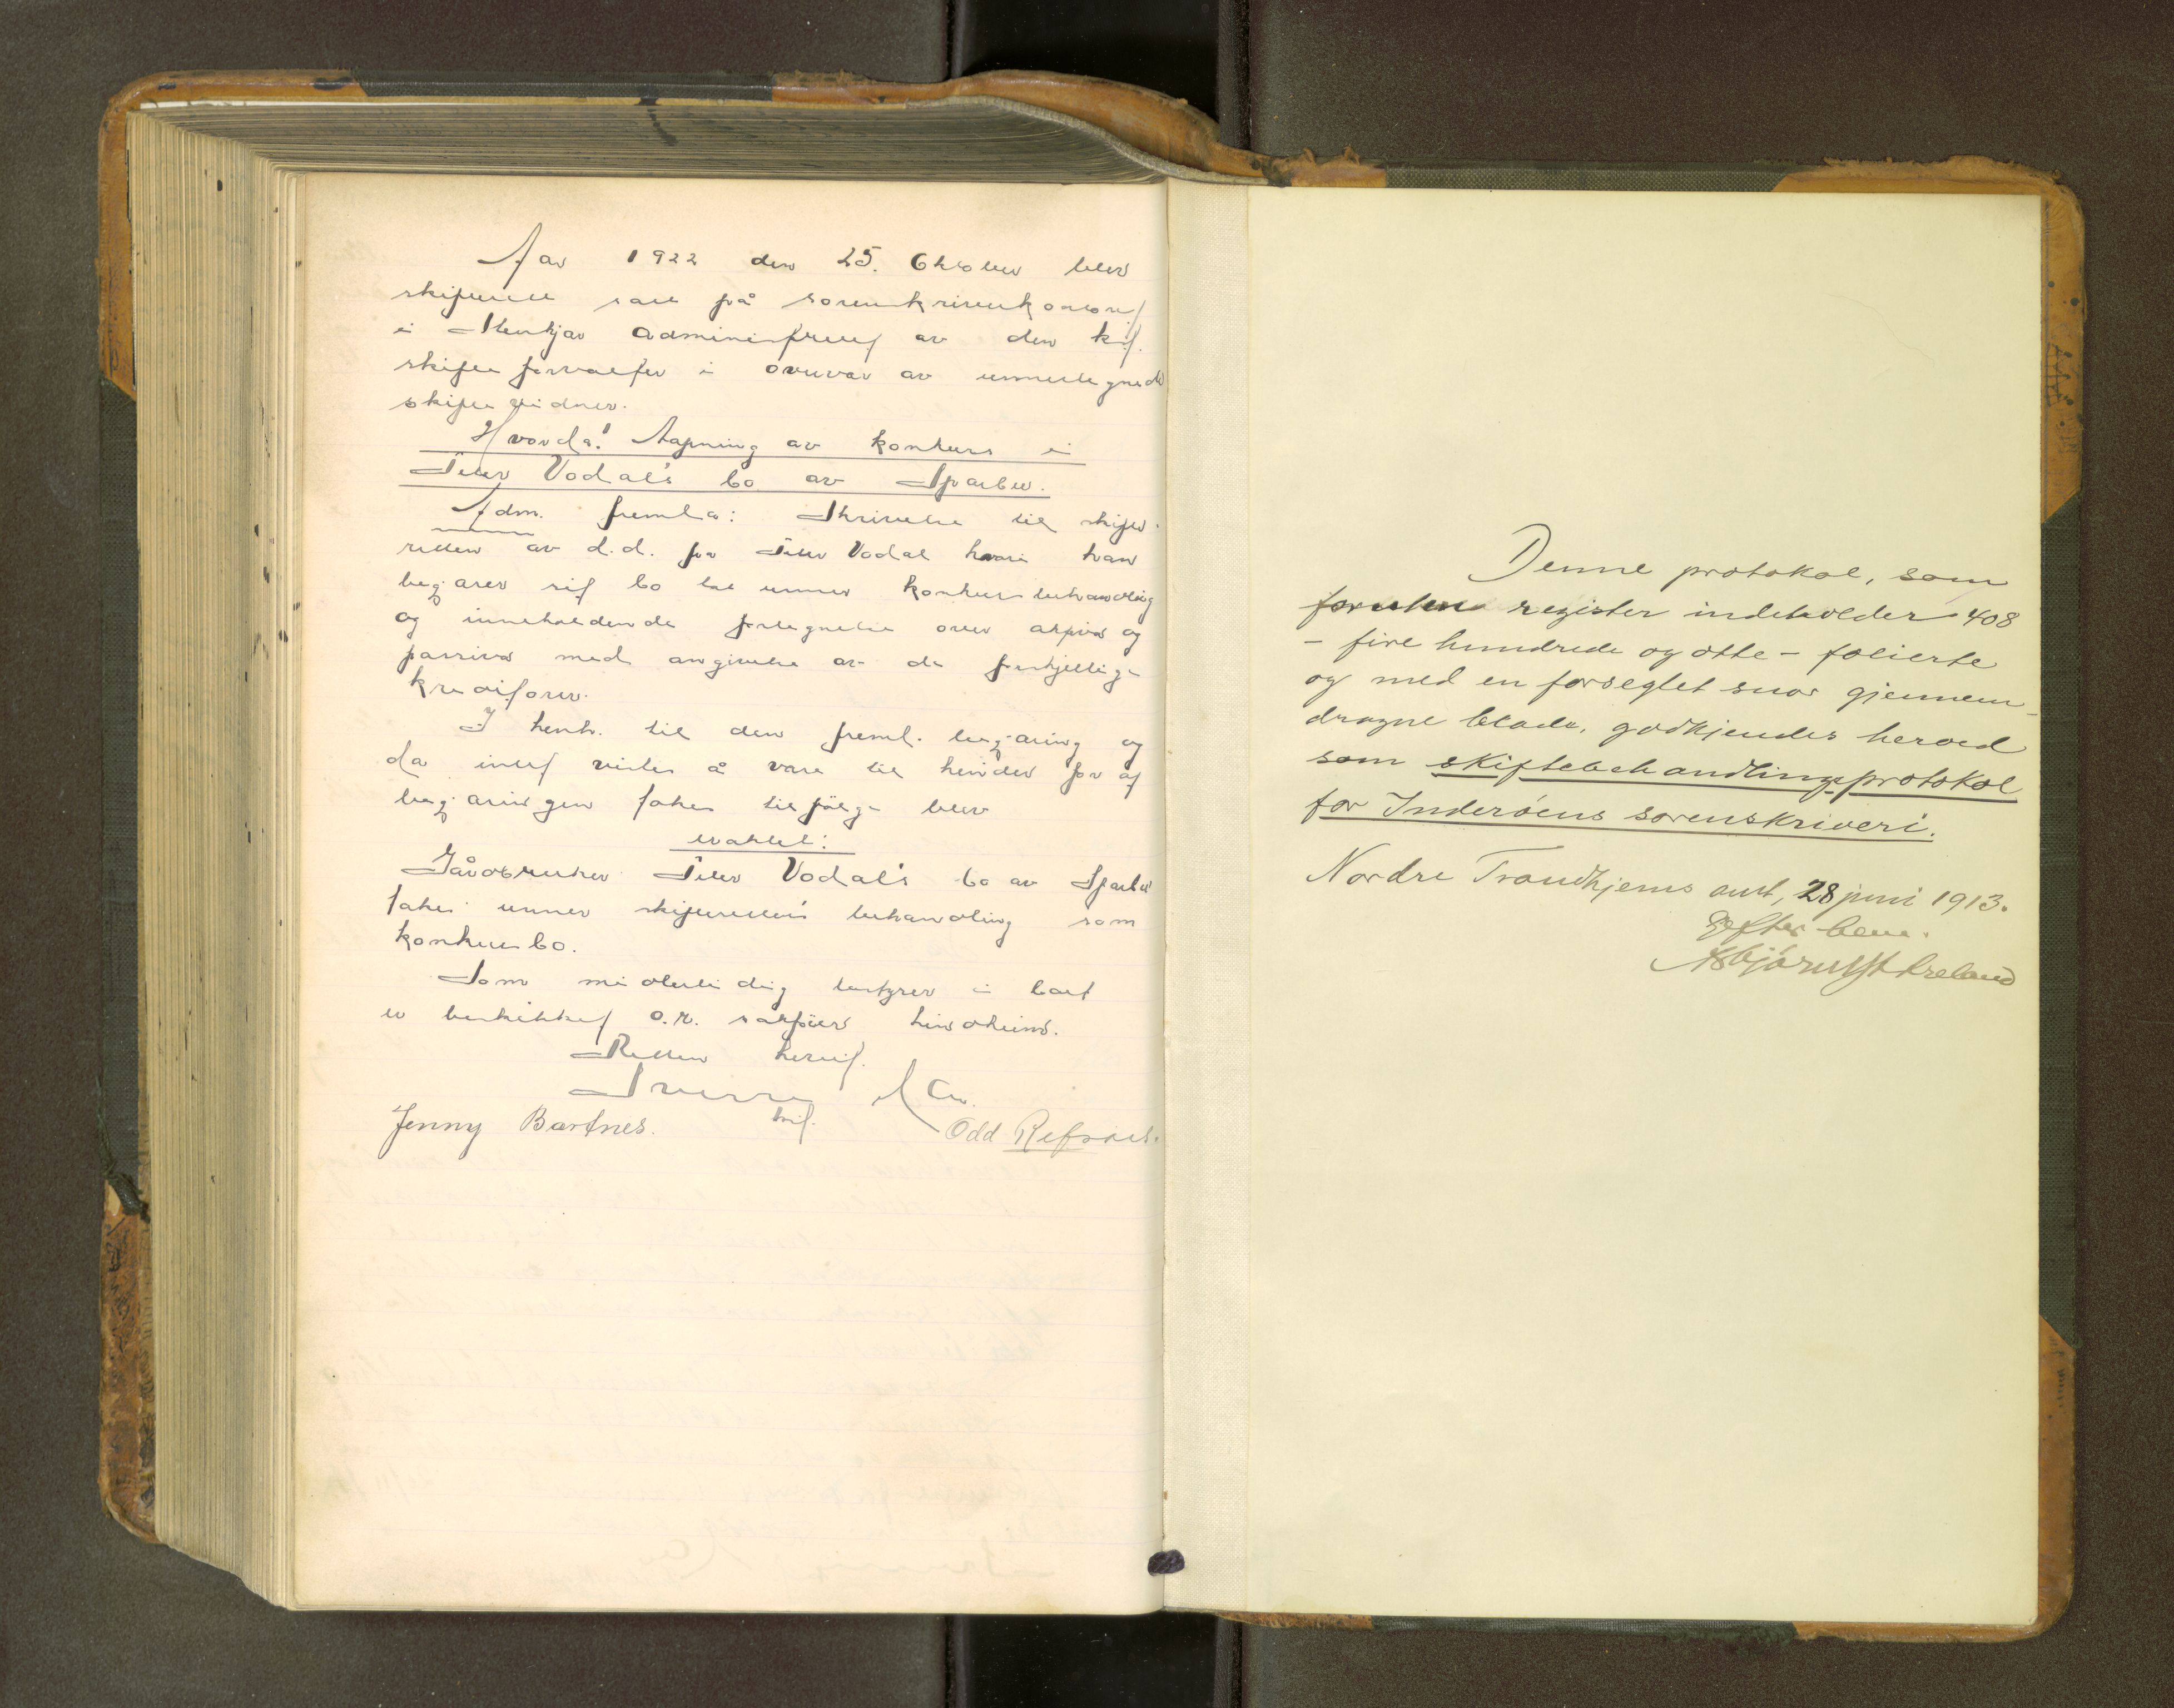 Aar 1922 den 25. Oktober blev
skifterett satt på sorenskriverkontoret
i Stenkjær administrert av den kst.
skifteforvalter i overvær av undertegnede
skiftevidner.
Hvorda! Aapning av konkurs i
Peter Vodal's bo av Sparbu.
Adm. fremla: Skrivelse til skifte-
retten av d.d. fra Peter Vodal hvori han
begjærer sitt bo tatt under konkursbehandling
og inneholdende fortegnelse over aktiva og
passiva med angivelse av de forskjellige
kreditorer.
I henh. til den freml. begjæring og
da intet vites å være til hinder for at
begjæringen tas tilfølge blev
vedtatt:
Gårdbruker Peter Vodal's bo av Sparbu
tas under skifterettens behandling som
konkursbo.
Som midlertidig bestyrer i boet
er beskikket o.r. sakfører
Retten hevet.
Sverre
kst.
Jenny Bartnes. Odd Refsaas.
Denne protokol, som
foruten register indeholder 408
- fire hundrede og otte - folierte
og med en forseglet snor gjennem-
dragne blade, godkjendes herved
som skiftebehandlingsprotokol
for Inderöens sorenskriveri.
Nordre Trondhjems amt, 28 juni 1913.
Efter bem.